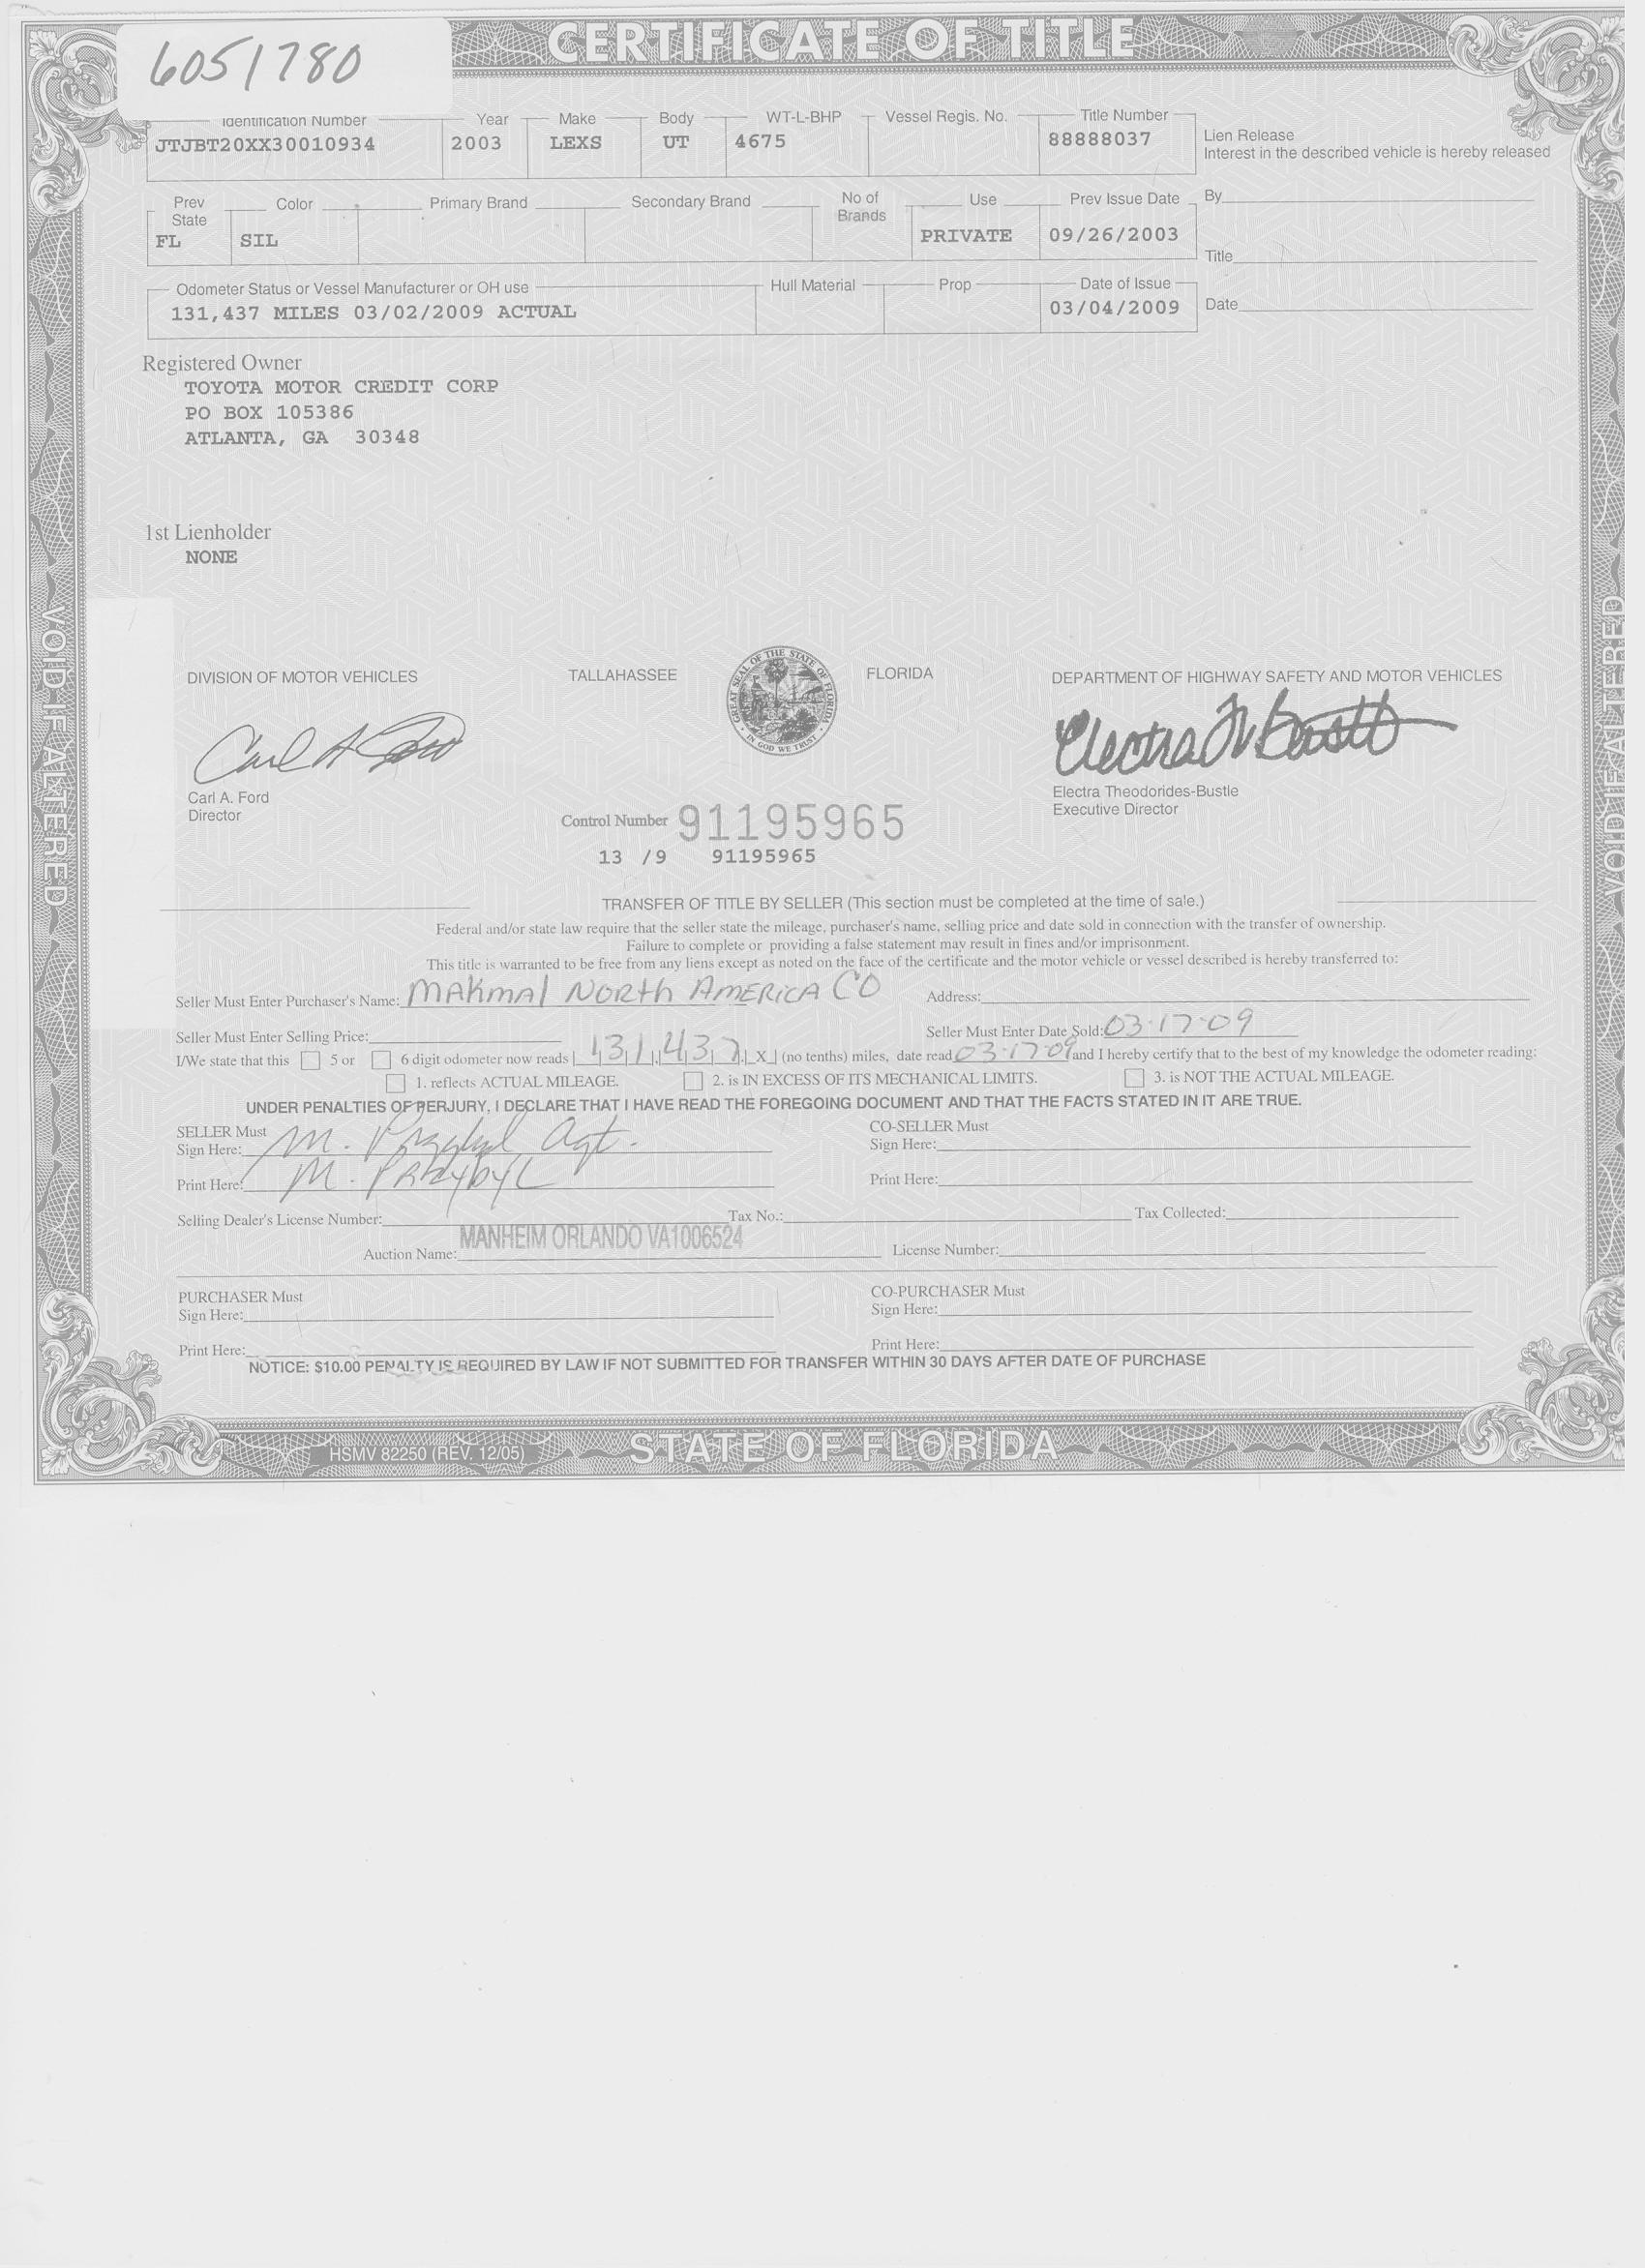 CERTIFICATE OF TITLE
6051780
Identification Number Year Make Body WT-L-BHP Vessel Regis. No. Title Number
JTJBT20XX30010934 2003 LEXS UT 4675 88888037
Lien Release
Interest in the described vehicle is hereby released
Prev State Color Primary Brand Secondary Brand No of Brands Use Prev Issue Date
FL SIL PRIVATE 09/26/2003
By
Title
Odometer Status or Vessel Manufacturer or OH use Hull Material Prop Date of Issue
131,437 MILES 03/02/2009 ACTUAL 03/04/2009
Date
Registered Owner
TOYOTA MOTOR CREDIT CORP
PO BOX 105386
ATLANTA, GA 30348
1st Lienholder
NONE
VOID IF ALTERED
VOID IF ALTERED
DIVISION OF MOTOR VEHICLES TALLAHASSEE FLORIDA DEPARTMENT OF HIGHWAY SAFETY AND MOTOR VEHICLES
GREAT SEAL OF THE STATE OF FLORIDA
IN GOD WE TRUST
Carl A. Ford
Director
Electra Theodorides-Bustle
Executive Director
Control Number 91195965
13 /9 91195965
TRANSFER OF TITLE BY SELLER (This section must be completed at the time of sale.)
Federal and/or state law require that the seller state the mileage, purchaser's name, selling price and date sold in connection with the transfer of ownership.
Failure to complete or providing a false statement may result in fines and/or imprisonment.
This title is warranted to be free from any liens except as noted on the face of the certificate and the motor vehicle or vessel described is hereby transferred to:
Seller Must Enter Purchaser's Name: MAKMAL NORTH AMERICA CO Address:
Seller Must Enter Selling Price: Seller Must Enter Date Sold: 03-17-09
I/We state that this 5 or 6 digit odometer now reads 131,437 X (no tenths) miles, date read 03-17-09 and I hereby certify that to the best of my knowledge the odometer reading:
1. reflects ACTUAL MILEAGE. 2. is IN EXCESS OF ITS MECHANICAL LIMITS. 3. is NOT THE ACTUAL MILEAGE.
UNDER PENALTIES OF PERJURY, I DECLARE THAT I HAVE READ THE FOREGOING DOCUMENT AND THAT THE FACTS STATED IN IT ARE TRUE.
SELLER Must Sign Here: M. Przybyl Agt. CO-SELLER Must Sign Here:
Print Here: M. PRZYBYL Print Here:
Selling Dealer's License Number: Tax No.: Tax Collected:
Auction Name: MANHEIM ORLANDO VA1006524 License Number:
PURCHASER Must Sign Here: CO-PURCHASER Must Sign Here:
Print Here: Print Here:
NOTICE: $10.00 PENALTY IS REQUIRED BY LAW IF NOT SUBMITTED FOR TRANSFER WITHIN 30 DAYS AFTER DATE OF PURCHASE
HSMV 82250 (REV. 12/05)
STATE OF FLORIDA